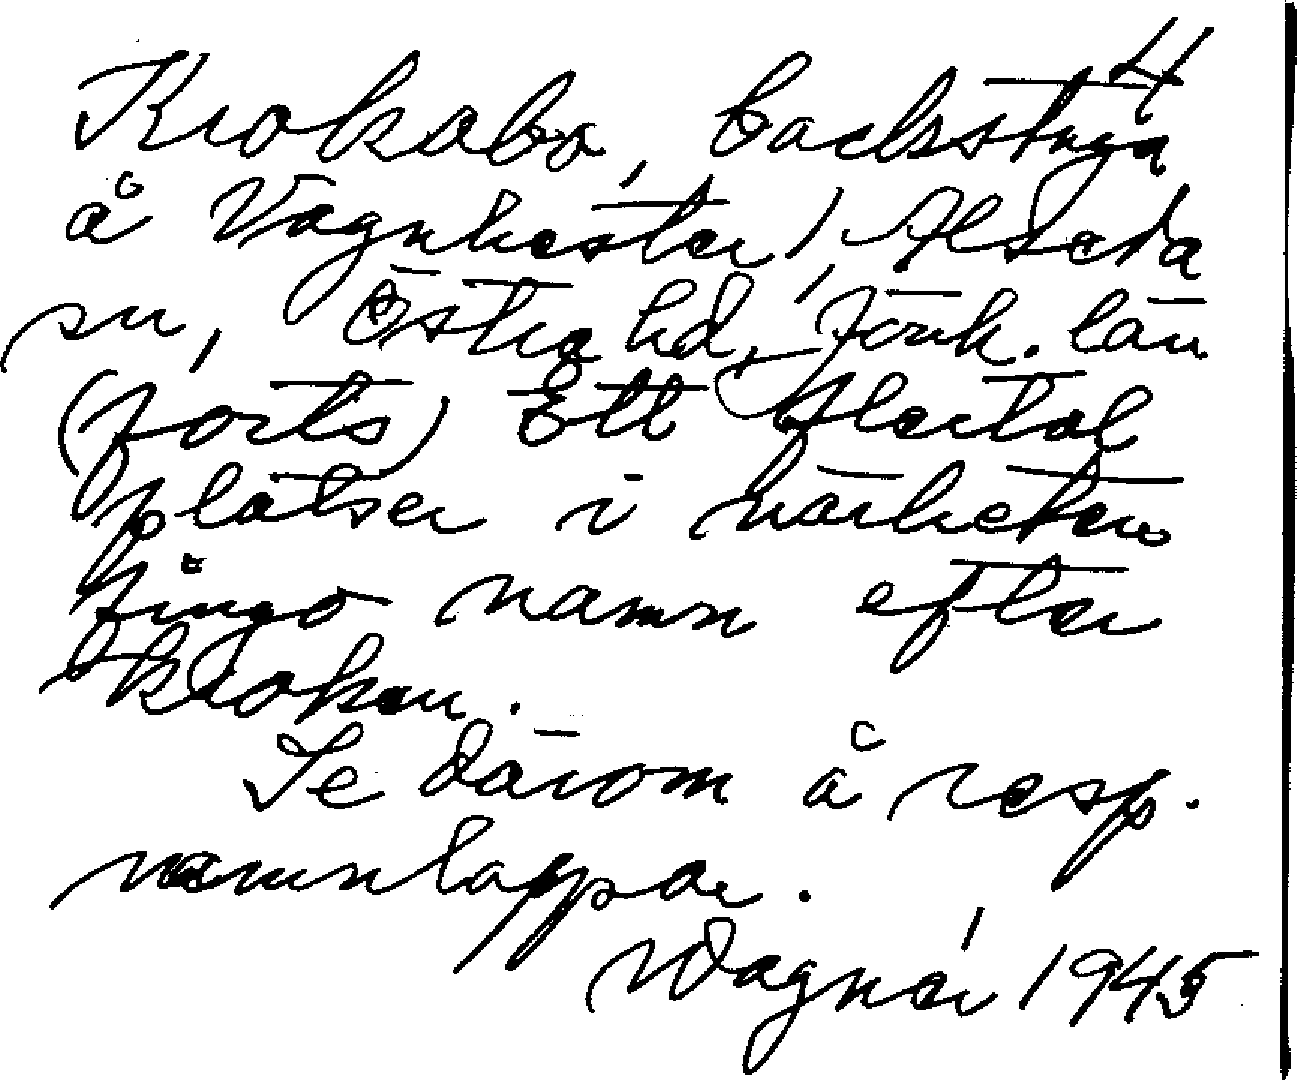 4
Krokabo, backstuga
å Vagnhester, Alseda
sn, Östra hd, Jönk. län
(forts) Ett flertal
platser i närheten
fingo namn efter
Kroken.
Se därom å resp.
namnlappar.
Wagnér 1945